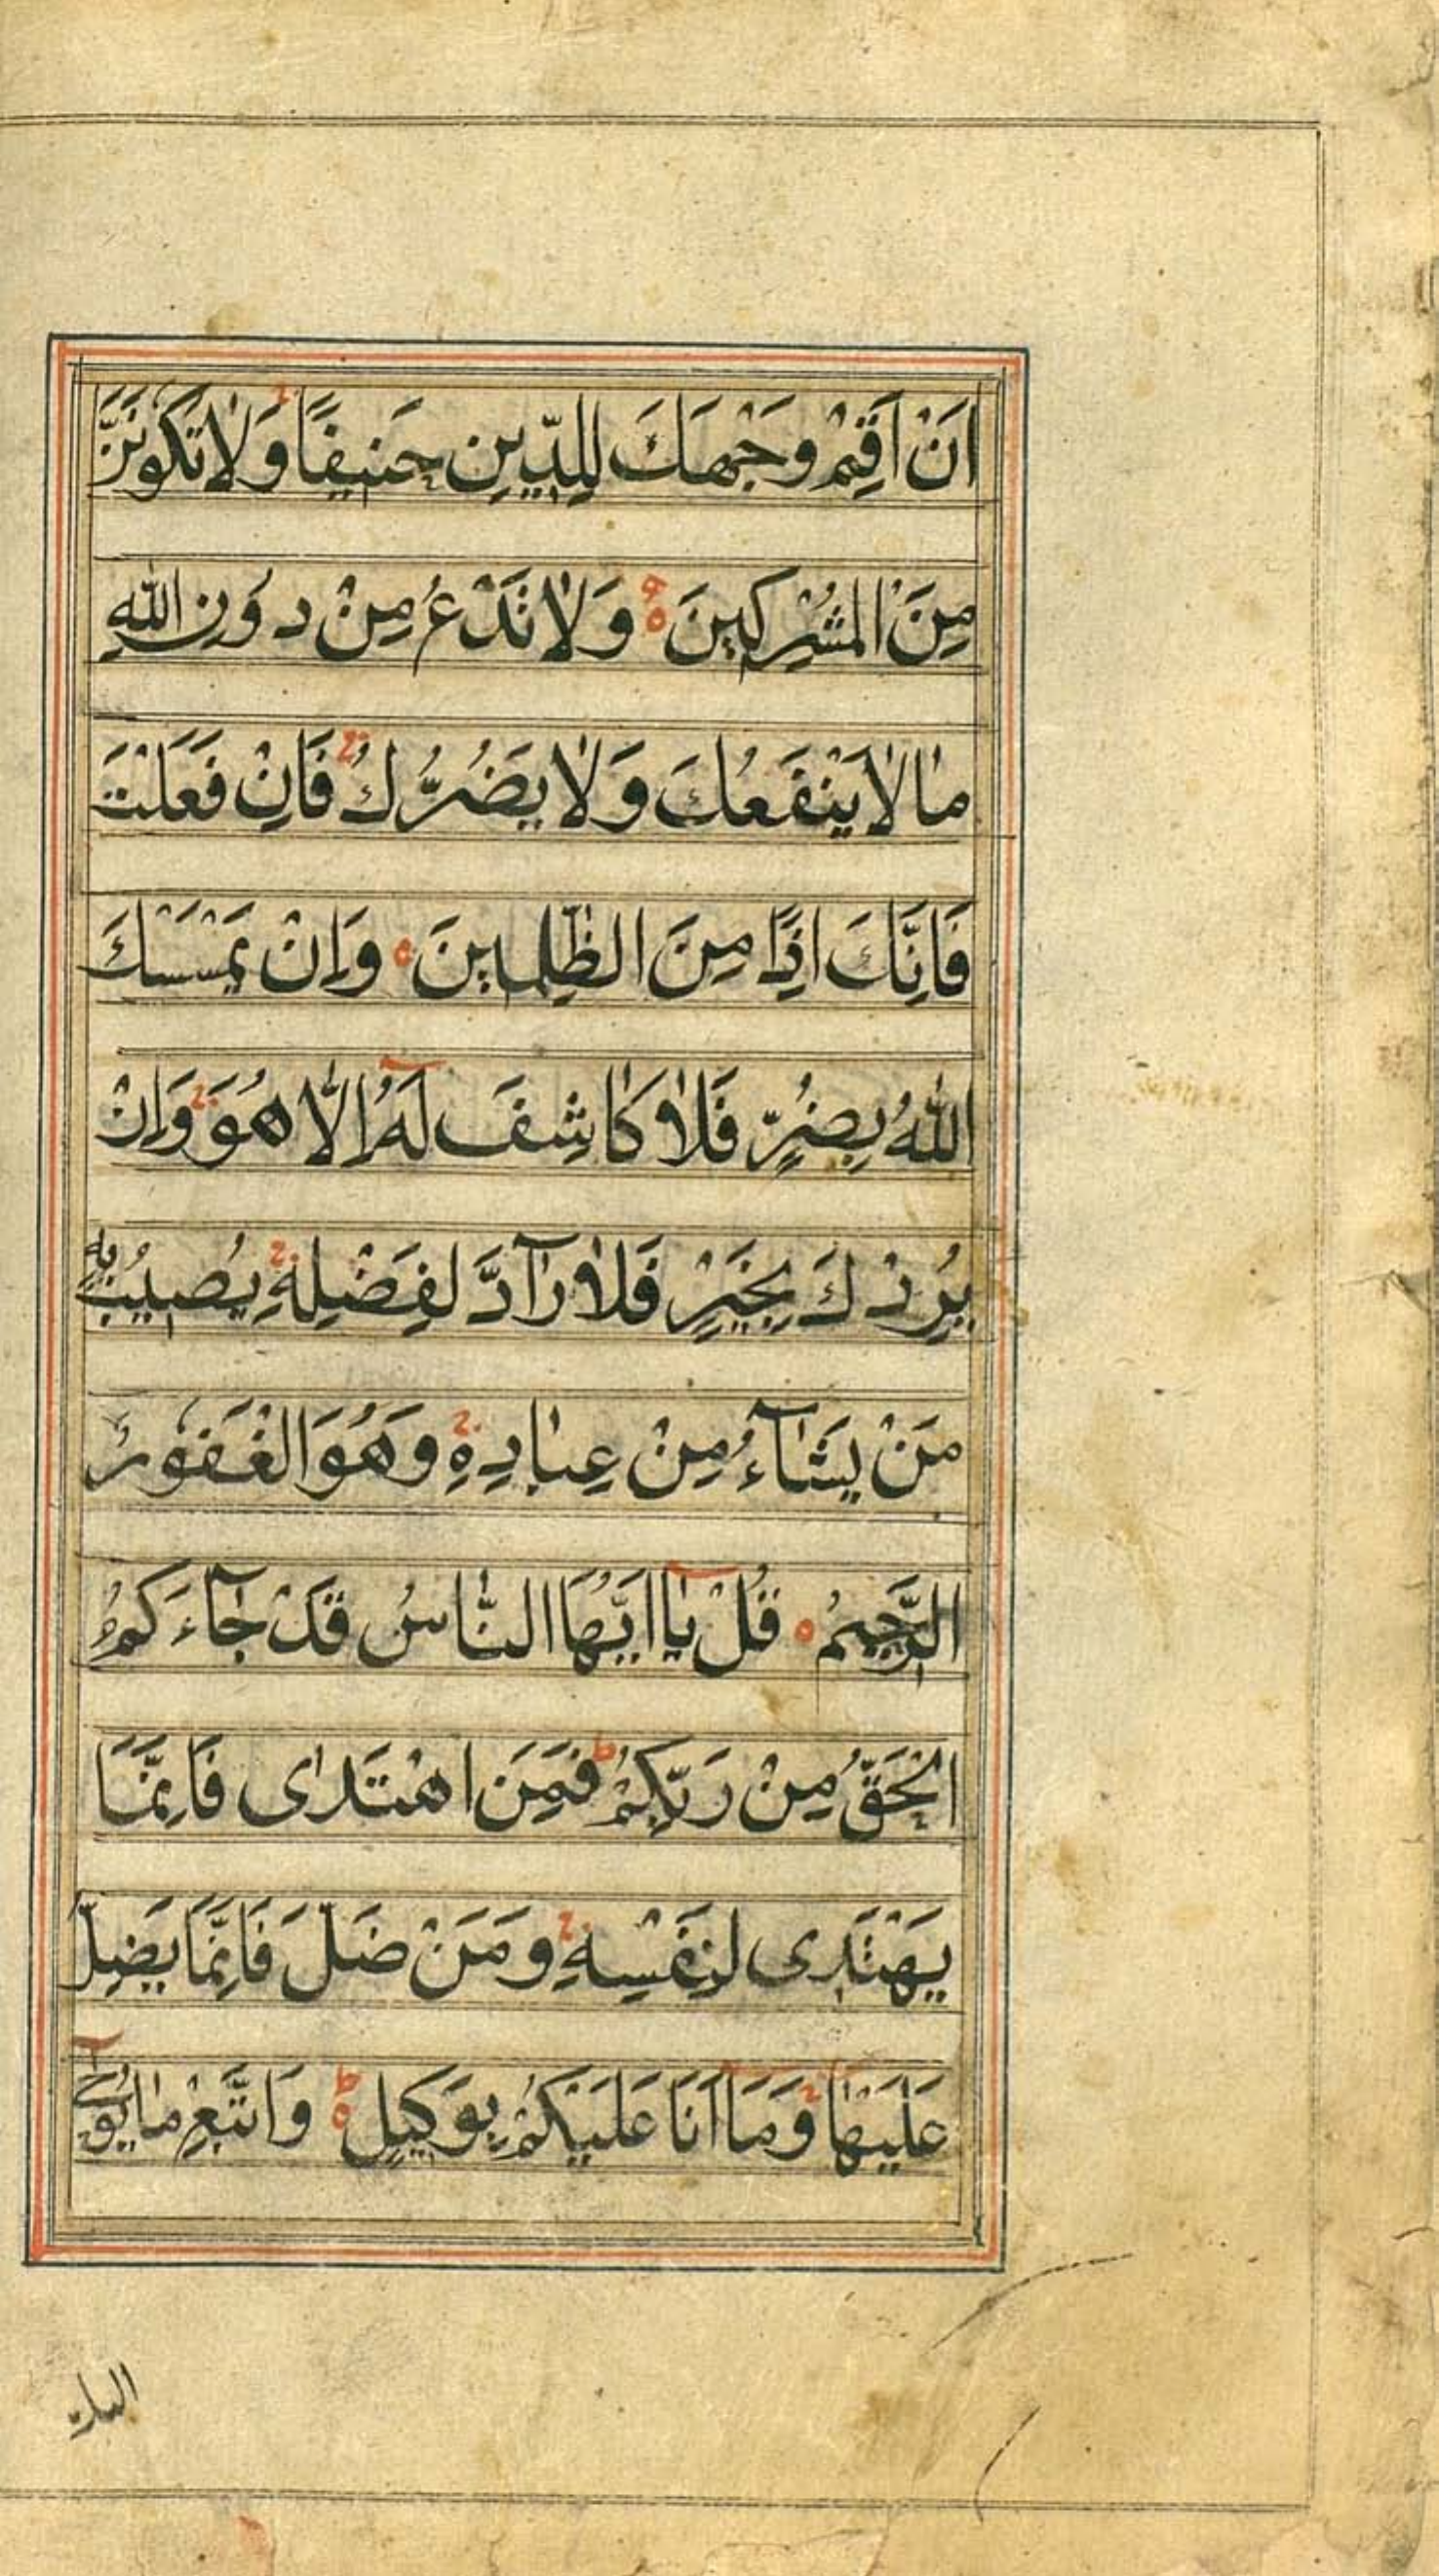 اَنْ اَقِمْ وَجْهَكَ لِلدِّينِ حَنِيفًا وَلَا تَكُونَنَّ
مِنَ الْمُشْرِكِينَ ه وَلَا تَدْعُ مِنْ دُونِ اللّٰهِ
مٰا لٰا يَنْفَعُكَ وَلٰا يَضُرُّكَ فَاِنْ فَعَلْتَ
فَاِنَّكَ اِذًا مِنَ الظّٰلِمِينَ ه وَاِنْ يَمْسَسْكَ
اللّٰهُ بِضُرٍّ فَلٰا كٰاشِفَ لَهُ اِلّٰا هُوَ وَاِنْ
يُرِدْكَ بِخَيْرٍ فَلٰا رَآدَّ لِفَضْلِهِ يُصِيبُ بِهِ
مَنْ يَشٰآءُ مِنْ عِبٰادِهِ وَهُوَ الْغَفُورُ
الرَّحِيمُ ه قُلْ يٰا اَيُّهَا النّٰاسُ قَدْ جٰآءَكُمُ
الْحَقُّ مِنْ رَبِّكُمْ ط فَمَنِ اهْتَدٰى فَاِنَّمَا
يَهْتَدِى لِنَفْسِهِ وَمَنْ ضَلَّ فَاِنَّمَا يَضِلُّ
عَلَيْهٰا وَمَا اَنَا عَلَيْكُمْ بِوَكِيلٍ ط ه وَاتَّبِعْ مٰا يُوحٰٓى
اليك